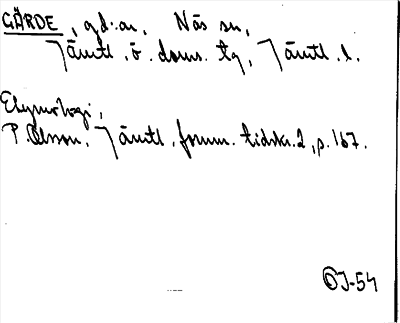 GÄRDE, gd:ar, Näs sn,
Jämtl. ö. doms. tg, Jämtl. l.
Etymologi,
P. Olsson, Jämtl. fornm. tidskr. 2, p. 167.
OJ-54